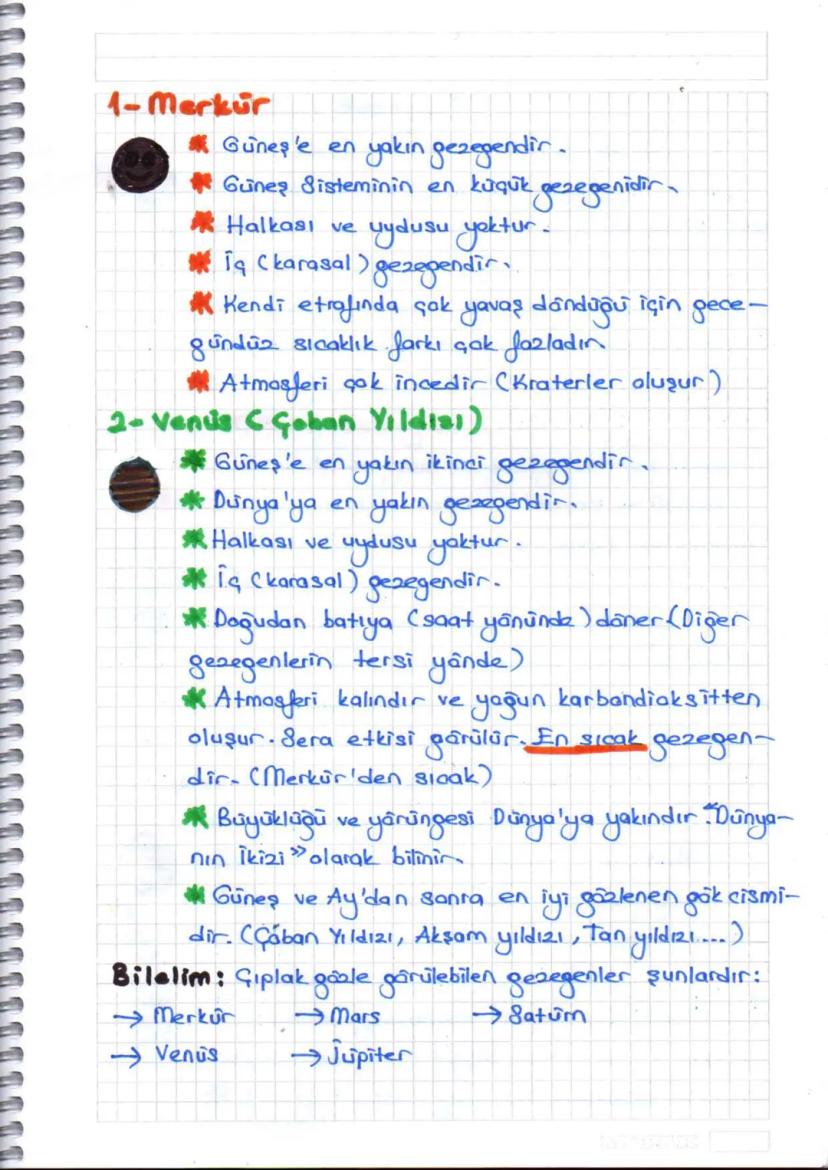 1- Merkür
* Güneş'e en yakın gezegendir.
* Güneş Sisteminin en küçük gezegenidir.
* Halkası ve uydusu yoktur.
* İç (karasal) gezegendir.
* Kendi etrafında çok yavaş döndüğü için gece-
gündüz sıcaklık farkı çok fazladır.
* Atmosferi çok incedir (Kraterler oluşur)
2- Venüs (Çoban Yıldızı)
* Güneş'e en yakın ikinci gezegendir.
* Dünya'ya en yakın gezegendir.
* Halkası ve uydusu yoktur.
* İç (karasal) gezegendir.
* Doğudan batıya (saat yönünde) döner (Diğer
gezegenlerin tersi yönde)
* Atmosferi kalındır ve yoğun karbondioksitten
oluşur. Sera etkisi görülür. En sıcak gezegen-
dir. (Merkür'den sıcak)
* Büyüklüğü ve yörüngesi Dünya'ya yakındır. "Dünya-
nın İkizi" olarak bilinir.
* Güneş ve Ay'dan sonra en iyi gözlenen gök cismi-
dir. (Çoban Yıldızı, Akşam yıldızı, Tan yıldızı...)
Bilelim: Çıplak gözle görülebilen gezegenler şunlardır:
→ Merkür → Mars → Satürn
→ Venüs → Jüpiter